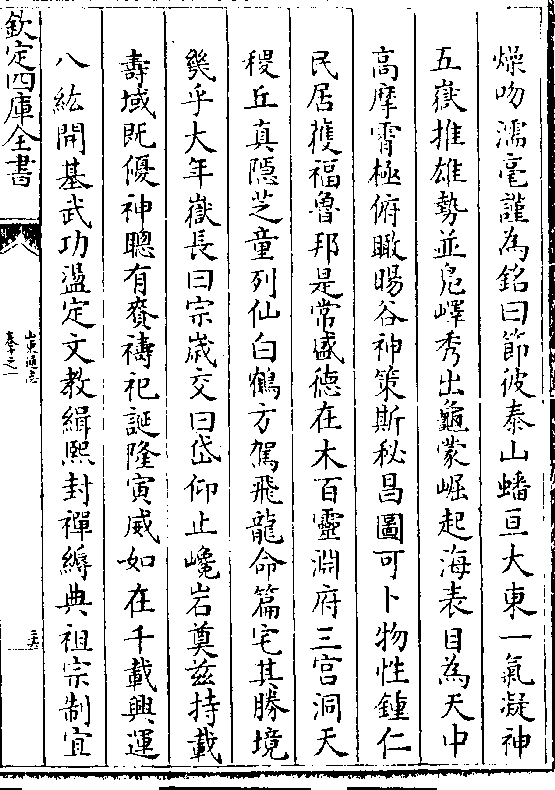 燥吻濡毫謹為銘曰節彼泰山蟠亘大東一氣凝神
五嶽推雄勢並凫嶧秀出龜蒙崛起海表目為天中
高摩霄極俯瞰暘谷神策斯秘昌圖可卜物性鍾仁
民居獲福魯邦是常盛德在木百靈淵府三宫洞天
稷丘真隱芝童列仙白鶴方駕飛龍命篇宅其勝境
幾乎大年嶽長曰宗歳交曰岱仰止巉岩奠兹持載
壽域既優神聰有賚禱祀誕隆寅威如在千載興運
八紘開基武功溫定文教緝熙封禪縟典祖宗制宜
欽定四庫全書
山東通志
卷十一之一
三六